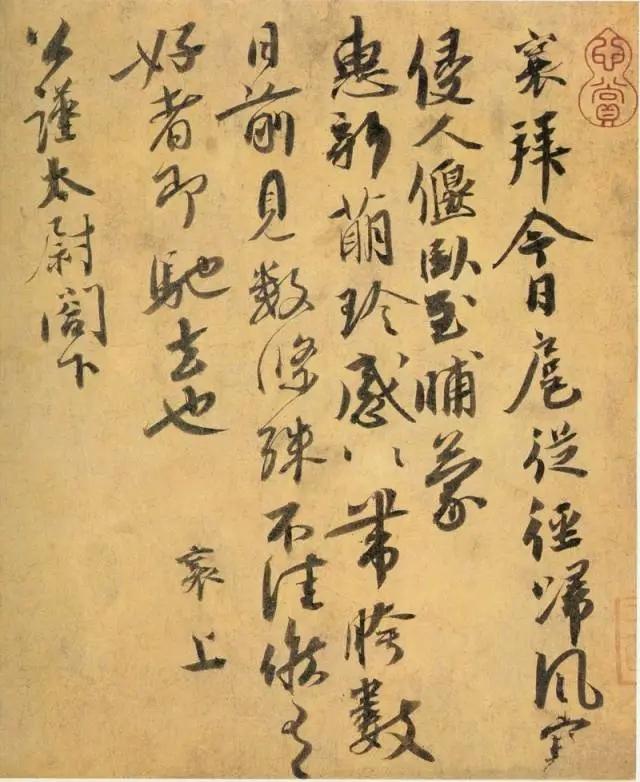 襄拜今日扈從徑歸風寒
侵人偃臥至晡蒙
惠新萌珍感ㄑ帶胯數
日前見數條殊不佳候有
好者即馳去也
襄上
公謹太尉閤下